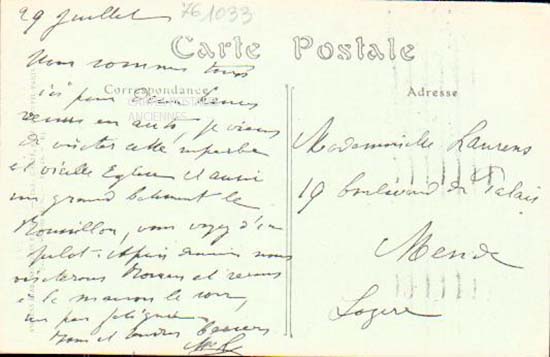 29 Juillet
761033
Carte Postale
Correspondance
Adresse
CARTES POSTALES
ANCIENNES
Nous sommes tous
ici pour Deux
venus en auto, je viens
de visiter cette superbe
et vieille Eglise et aussi
un grand batiment le
Roussillon, vous voyez d'ici
nous
visiterons Rouen et
à la maison le soir,
un peu
Bons et tendres baisers
Mademoiselle Laurens
19 boulevard du Palais
Mende
Lozère